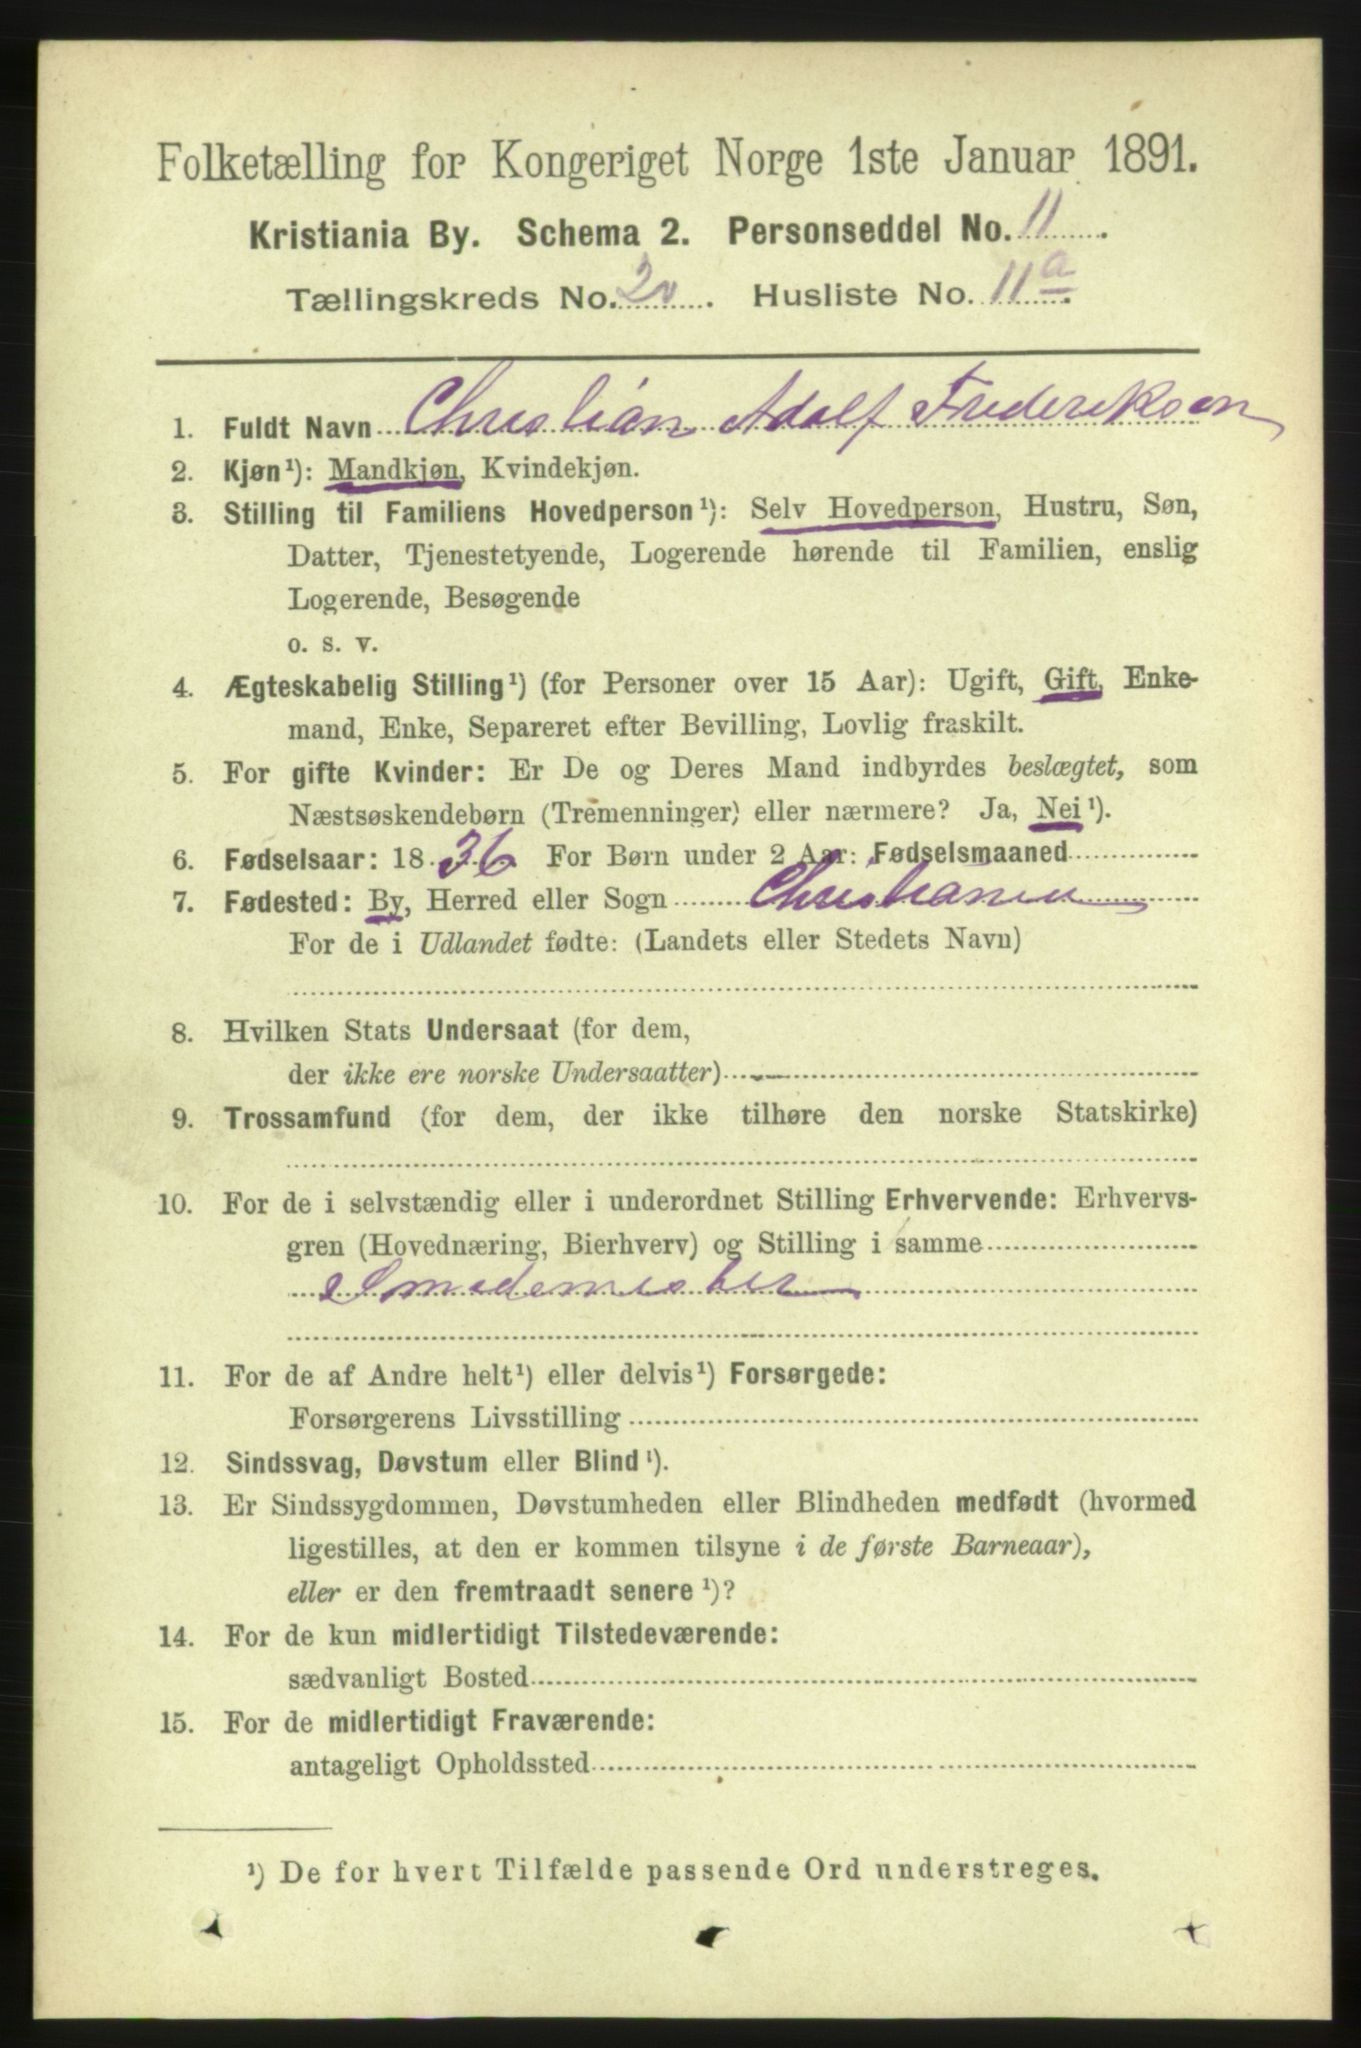 Folketælling for Kongeriget Norge 1ste Januar 1891.
Kristiania By. Schema 2. Personseddel No. 11.
Tællingskreds No. 20. Husliste No. 11a.
1. Fuldt Navn Christian Adolf Frederiksen
2. Kjøn¹): Mandkjøn, Kvindekjøn.
3. Stilling til Familiens Hovedperson¹): Selv Hovedperson, Hustru, Søn,
Datter, Tjenestetyende, Logerende hørende til Familien, enslig
Logerende, Besøgende
o. s. v.
4. Ægteskabelig Stilling¹) (for Personer over 15 Aar): Ugift, Gift, Enke-
mand, Enke, Separeret efter Bevilling, Lovlig fraskilt.
5. For gifte Kvinder: Er De og Deres Mand indbyrdes beslægtet, som
Næstsøskendebørn (Tremenninger) eller nærmere? Ja, Nei¹).
6. Fødselsaar: 1836 For Børn under 2 Aar: Fødselsmaaned
7. Fødested: By, Herred eller Sogn Christiania
For de i Udlandet fødte: (Landets eller Stedets Navn)
8. Hvilken Stats Undersaat (for dem,
der ikke ere norske Undersaatter)
9. Trossamfund (for dem, der ikke tilhøre den norske Statskirke)
10. For de i selvstændig eller i underordnet Stilling Erhvervende: Erhvervs-
gren (Hovednæring, Bierhverv) og Stilling i samme
Smedemester
11. For de af Andre helt¹) eller delvis¹) Forsørgede:
Forsørgerens Livsstilling
12. Sindssvag, Døvstum eller Blind¹).
13. Er Sindssygdommen, Døvstumheden eller Blindheden medfødt (hvormed
ligestilles, at den er kommen tilsyne i de første Barneaar),
eller er den fremtraadt senere¹)?
14. For de kun midlertidigt Tilstedeværende:
sædvanligt Bosted
15. For de midlertidigt Fraværende:
antageligt Opholdssted
¹) De for hvert Tilfælde passende Ord understreges.